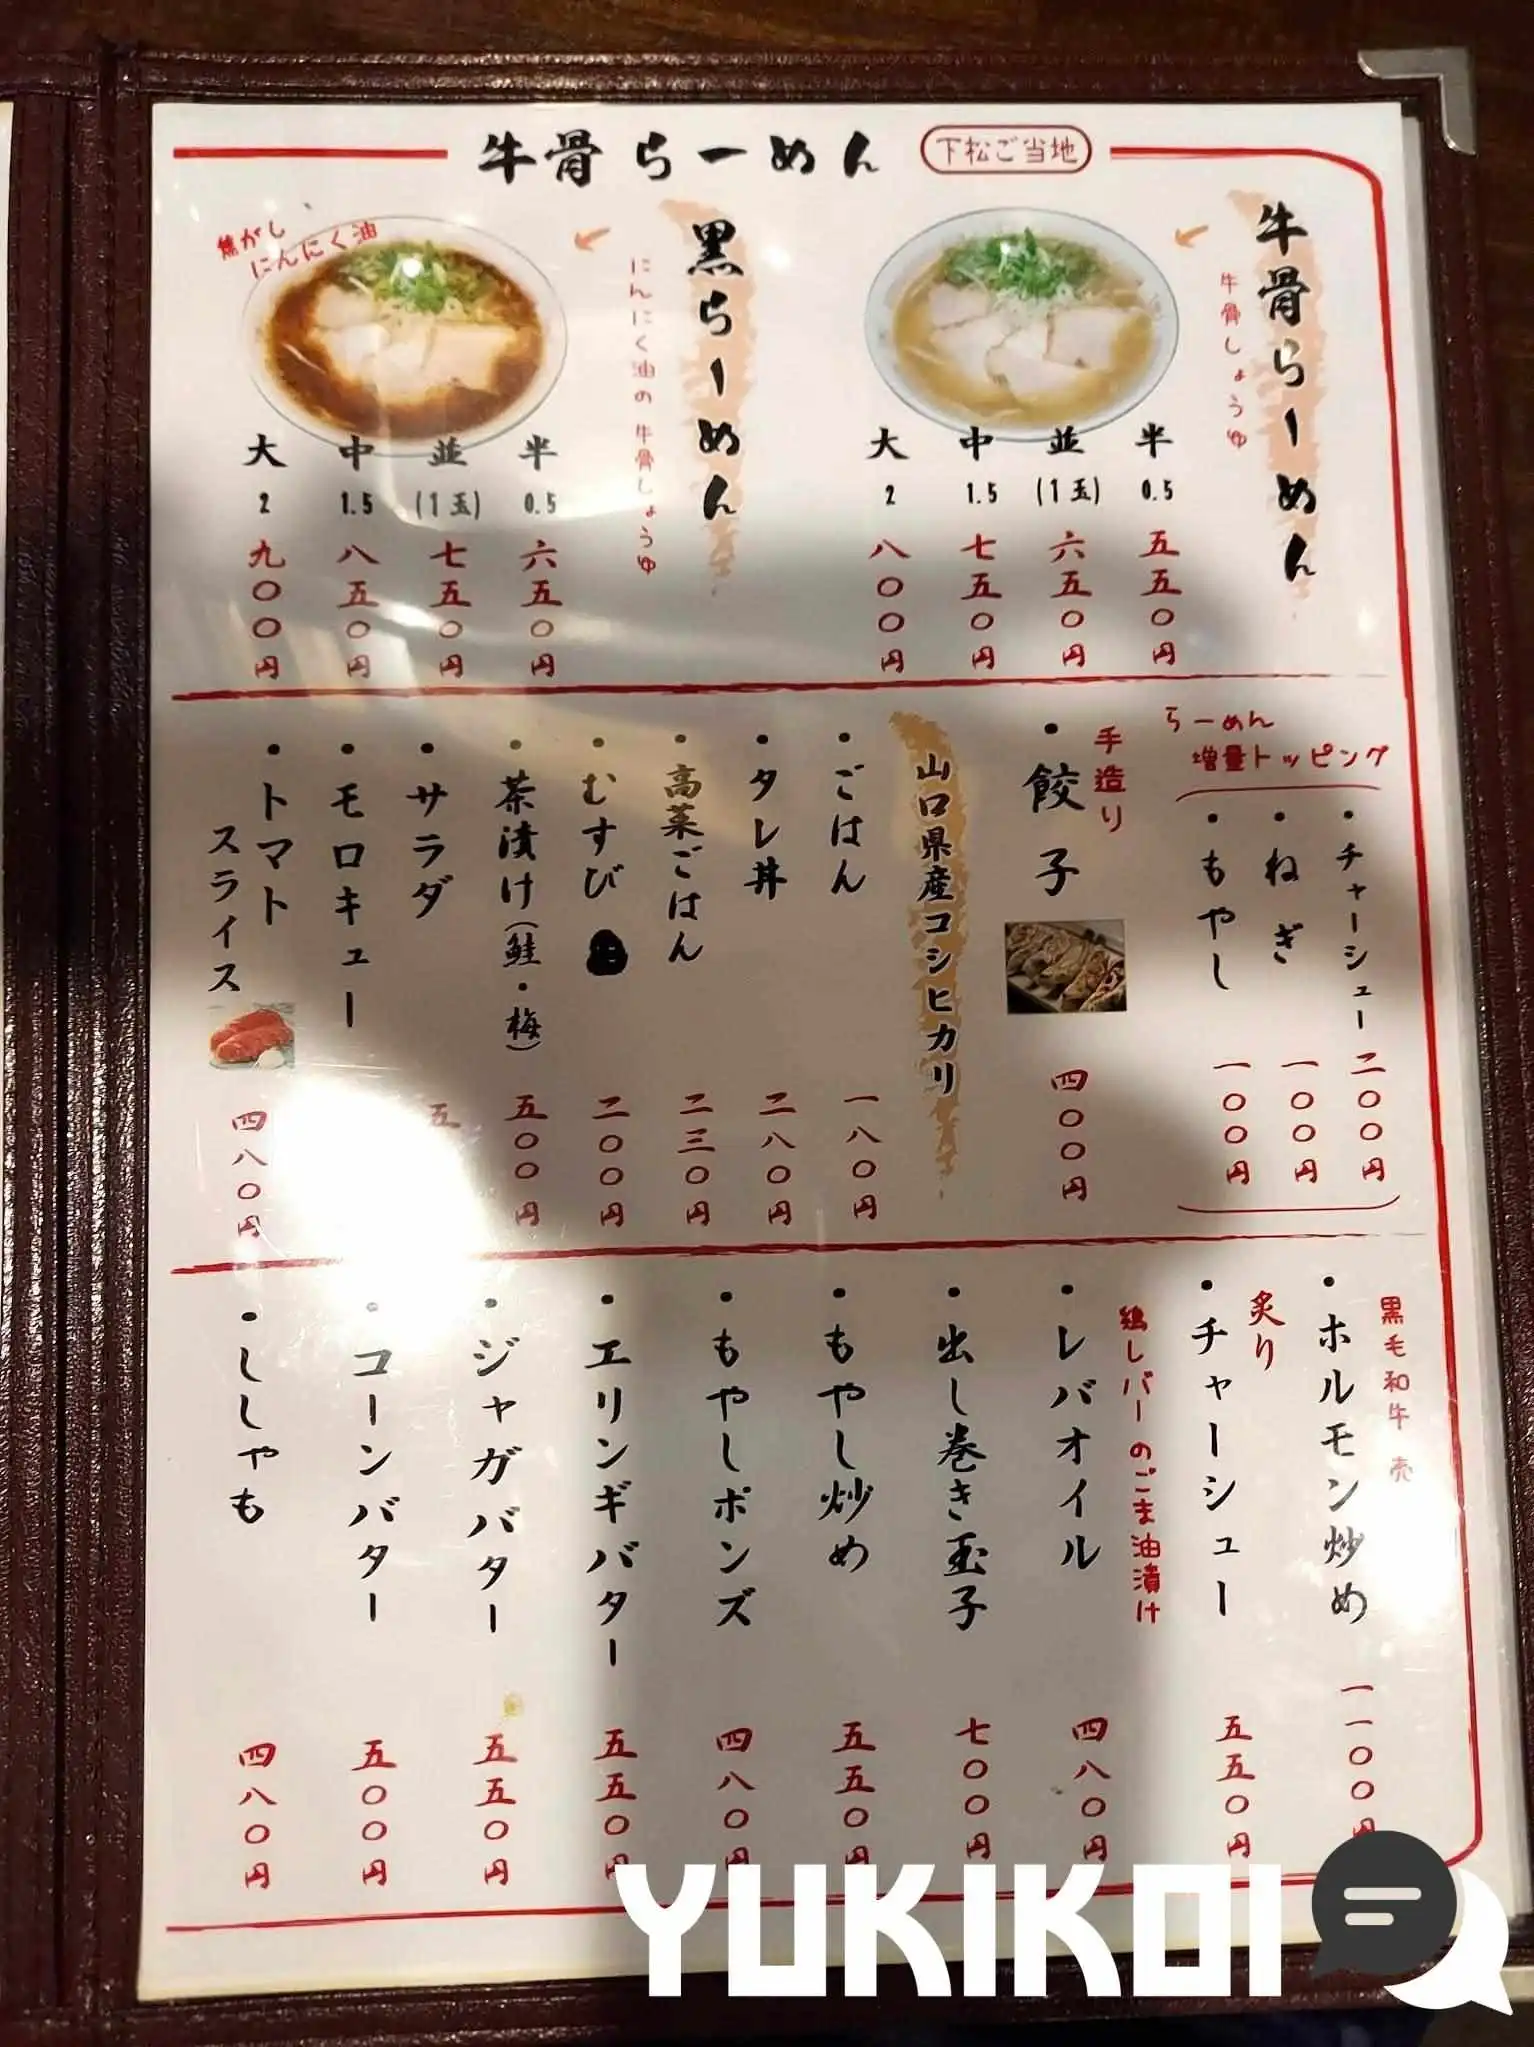 牛骨らーめん
下松ご当地
牛骨らーめん
牛骨しょうゆ
半 0.5 五五〇円
並 (1玉) 六五〇円
中 1.5 七五〇円
大 2 八〇〇円
黒らーめん
にんにく油の牛骨しょうゆ
焦がし
にんにく油
半 0.5 六五〇円
並 (1玉) 七五〇円
中 1.5 八五〇円
大 2 九〇〇円
らーめん
増量トッピング
・チャーシュー 二〇〇円
・ねぎ 一〇〇円
・もやし 一〇〇円
手造り
・餃子 四〇〇円
山口県産コシヒカリ
・ごはん 一八〇円
・タレ丼 二八〇円
・高菜ごはん 二三〇円
・むすび 二〇〇円
・茶漬け(鮭・梅) 五〇〇円
・サラダ 五
・モロキュー
・トマト
スライス 四八〇円
黒毛和牛
・ホルモン炒め 一一〇〇円
炙り
・チャーシュー 五五〇円
鶏レバーのごま油漬け
・レバオイル 四八〇円
・出し巻き玉子 七〇〇円
・もやし炒め 五五〇円
・もやしポンズ 四八〇円
・エリンギバター 五五〇円
・ジャガバター 五五〇円
・コーンバター 五〇〇円
・ししゃも 四八〇円
YUKIKOI